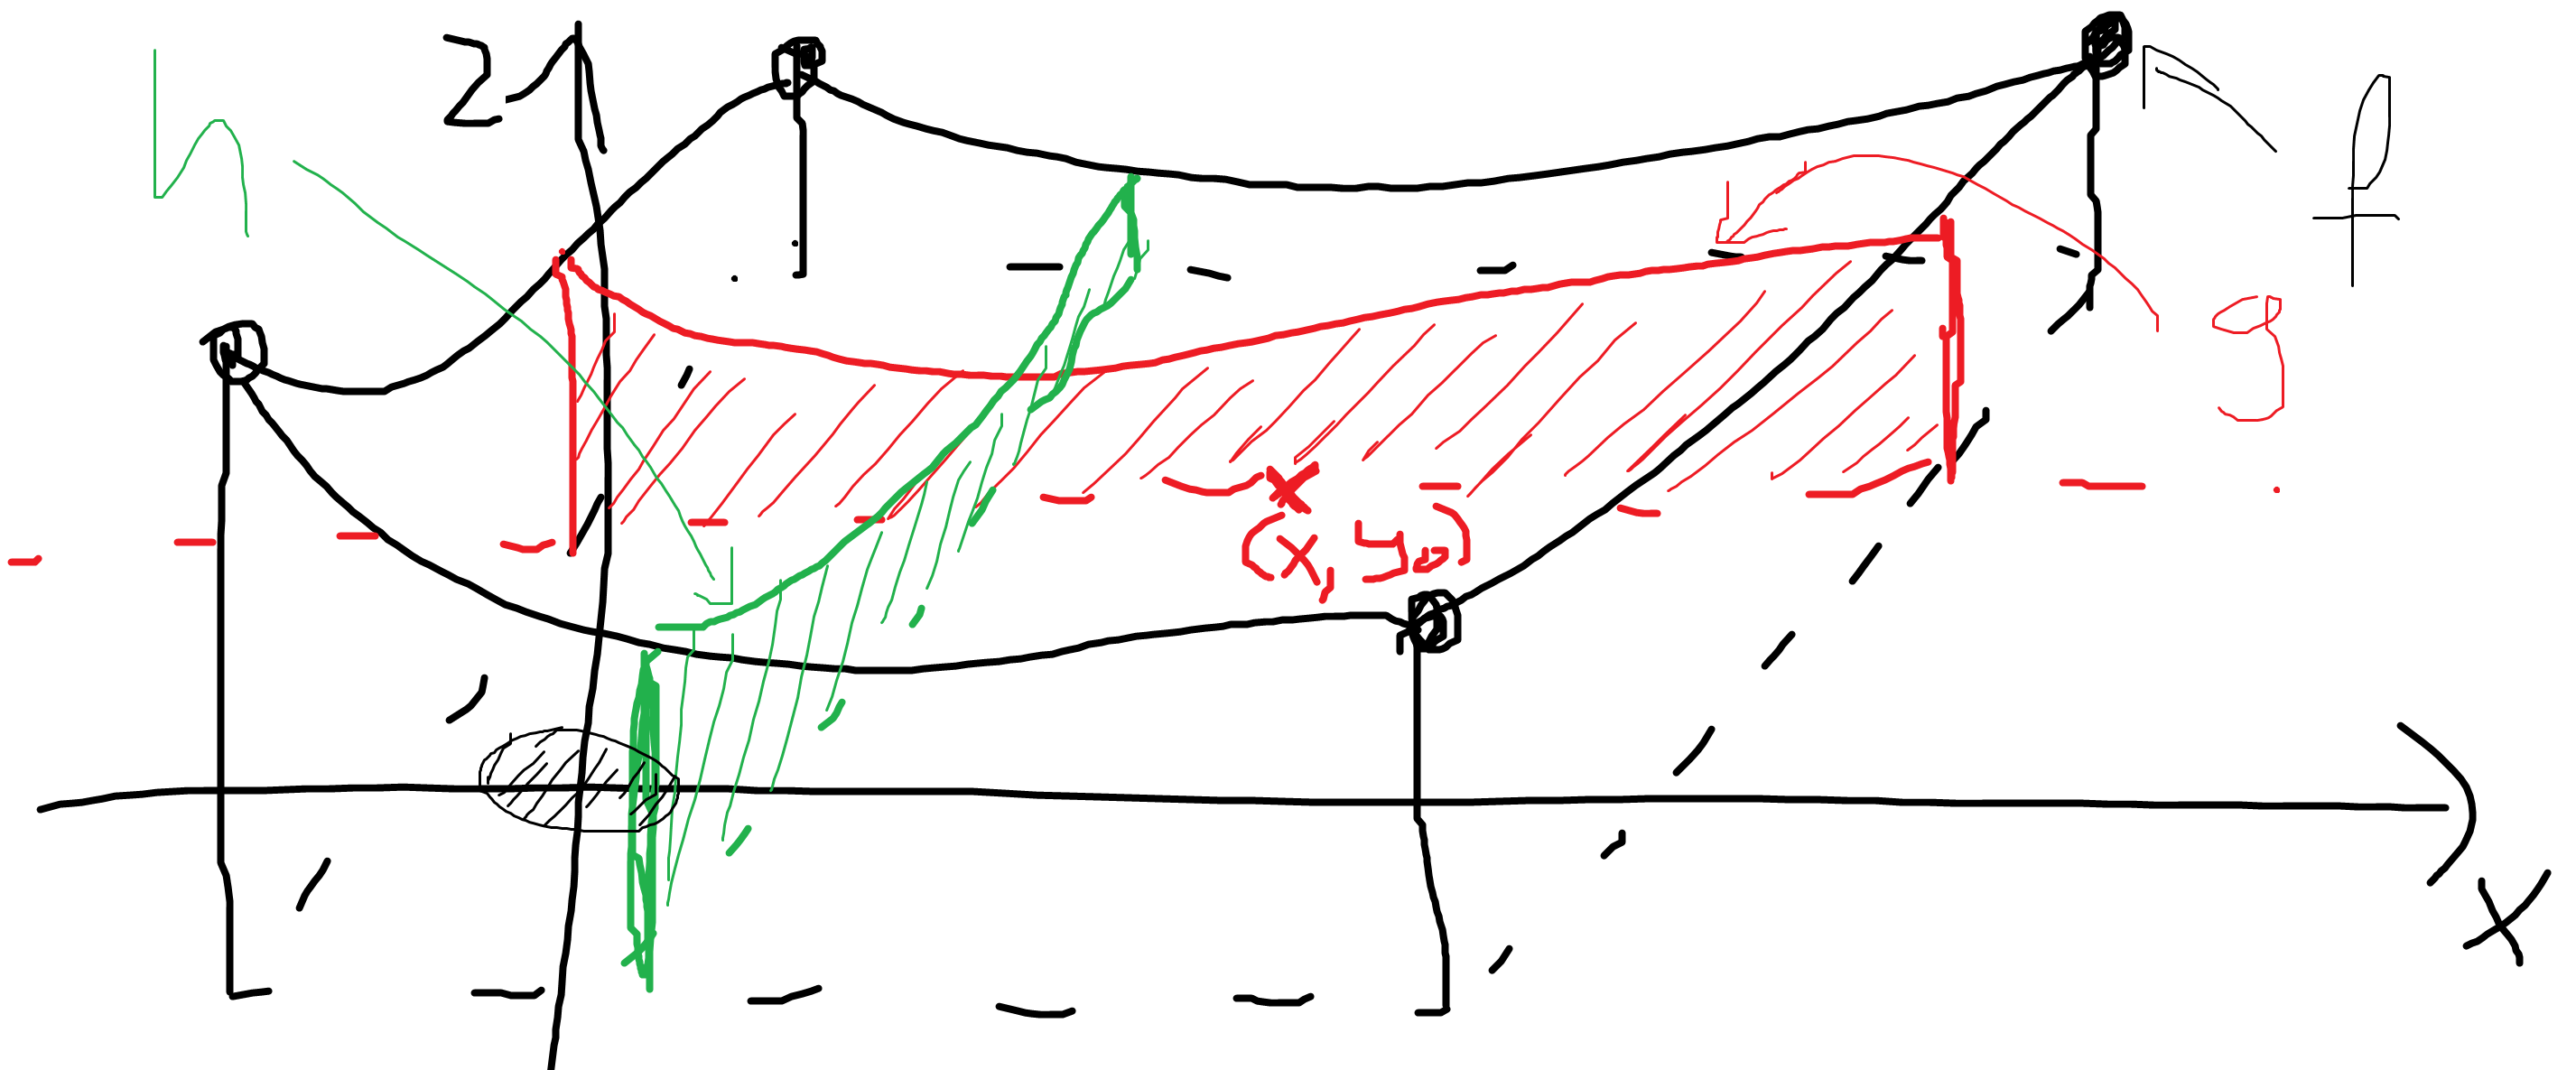 h
z
f
g
(x, y₀)
x